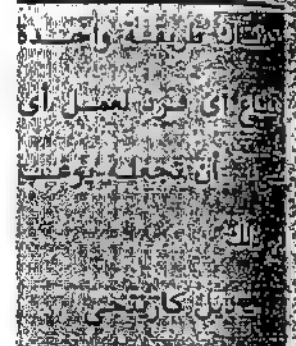 هناك طريقة واحدة
أى فرد لعمل أى
أن تجعله يرغب
ذلك
ديل كارنيجى